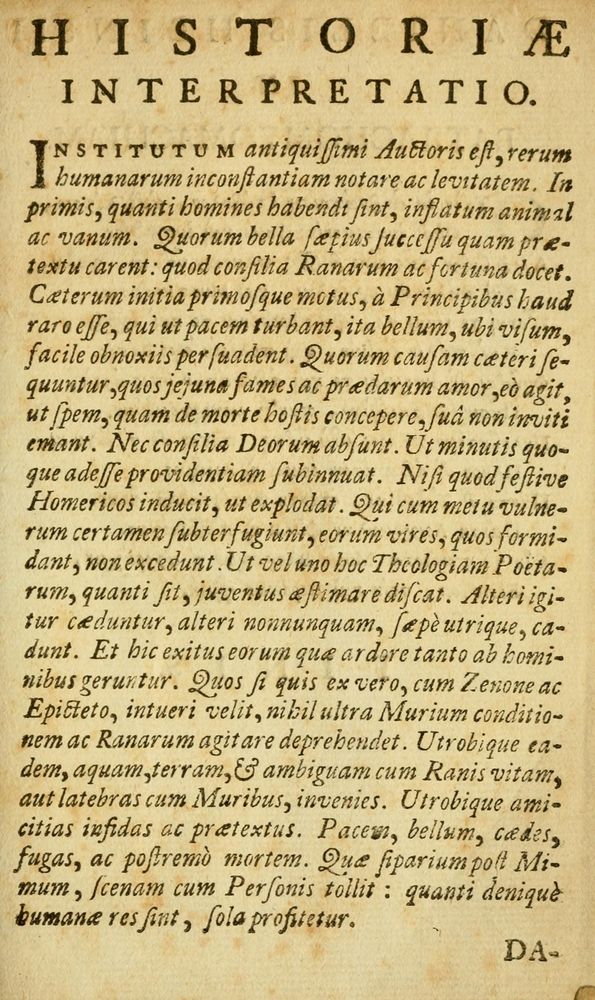 HISTORIÆ
INTERPRETATIO.
INSTITUTUM antiquiſſimi Auctoris eſt, rerum
humanarum inconſtantiam notare ac levitatem. In
primis, quanti homines habendi ſint, inflatum animal
ac vanum. Quorum bella ſæpius ſucceſſu quam præ-
textu carent: quod conſilia Ranarum ac fortuna docet.
Cæterum initia primoſque motus, à Principibus haud
raro eſſe, qui ut pacem turbant, ita bellum, ubi viſum,
facile obnoxiis perſuadent. Quorum cauſam cæteri ſe-
quuntur, quos jejuna fames ac prædarum amor, eò agit,
ut ſpem, quam de morte hoſtis concepere, ſuâ non inviti
emant. Nec conſilia Deorum abſunt. Ut minutis quo-
que adeſſe providentiam ſubinnuat. Niſi quod feſtive
Homericos inducit, ut explodat. Qui cum metu vulne-
rum certamen ſubterfugiunt, eorum vires, quos formi-
dant, non excedunt. Ut vel uno hoc Theologiam Poëta-
rum, quanti ſit, juventus æſtimare diſcat. Alteri igi-
tur cæduntur, alteri nonnunquam, ſæpè utrique, ca-
dunt. Et hic exitus eorum quæ ardore tanto ab homi-
nibus geruntur. Quos ſi quis ex vero, cum Zenone ac
Epicteto, intueri velit, nihil ultra Murium conditio-
nem ac Ranarum agitare deprehendet. Utrobique ea-
dem, aquam, terram, & ambiguam cum Ranis vitam,
aut latebras cum Muribus, invenies. Utrobique ami-
citias infidas ac prætextus. Pacem, bellum, cædes,
fugas, ac poſtremò mortem. Quæ ſiparium poſt Mi-
mum, ſcenam cum Perſonis tollit: quanti deniquè
humanæ res ſint, ſola profitetur.
DA-